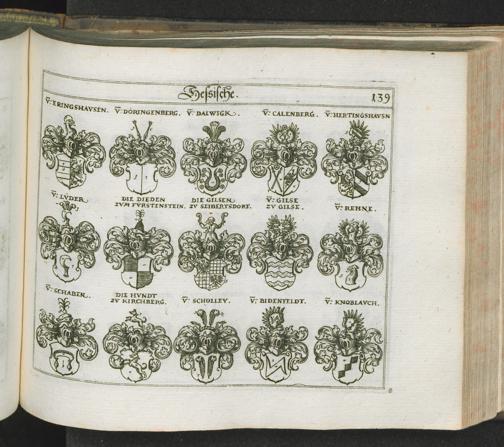 Hessische.
139
V: ERINGSHAVSEN. V: DÖRINGENBERG. V: DALWIGK. V: CALENBERG. V: HERTINGSHAVSN
V: LVDER
DIE DIEDEN
ZVM FVRSTENSTEIN.
DIE GILSEN
ZV SEIBERTSDORF.
V: GILSE
ZV GILSE.
V: REHNE.
V: SCHABEN.
DIE HVNDT
ZV KIRCHBERG.
V: SCHOLLEY.
V: BIDENFELDT.
V: KNOBLAVCH.